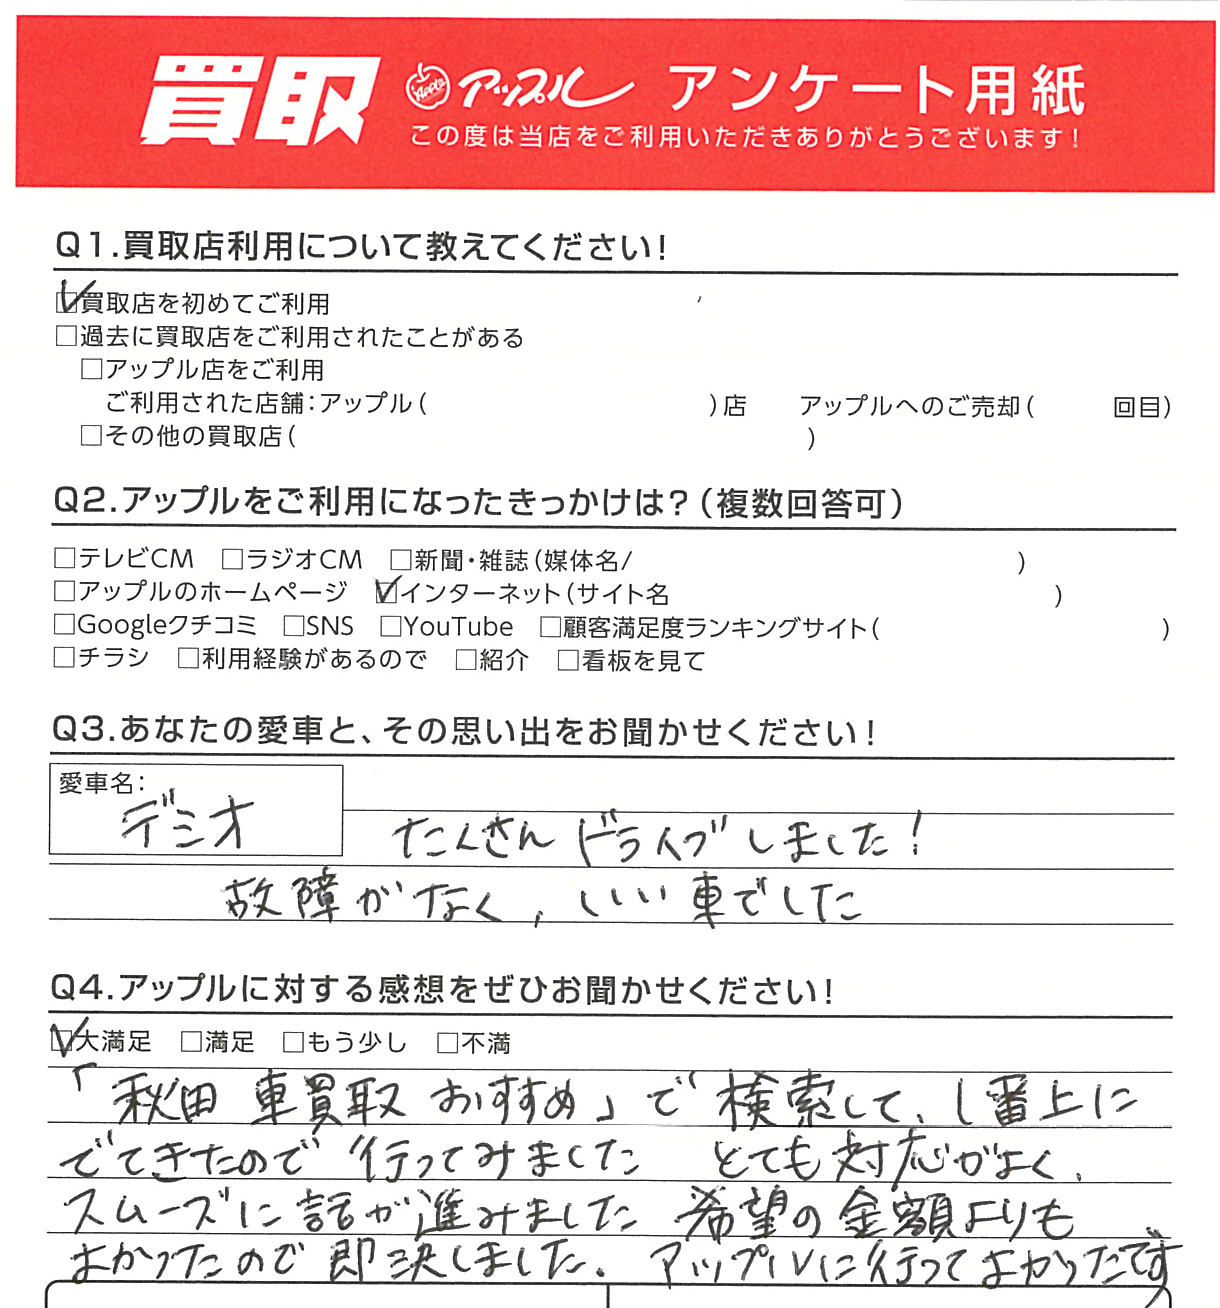 買取 Apple アップル アンケート用紙
この度は当店をご利用いただきありがとうございます!
Q1.買取店利用について教えてください!
☑買取店を初めてご利用
□過去に買取店をご利用されたことがある
□アップル店をご利用
ご利用された店舗:アップル( )店 アップルへのご売却( 回目)
□その他の買取店( )
Q2.アップルをご利用になったきっかけは?(複数回答可)
□テレビCM □ラジオCM □新聞・雑誌(媒体名/ )
□アップルのホームページ ☑インターネット(サイト名 )
□Googleクチコミ □SNS □YouTube □顧客満足度ランキングサイト( )
□チラシ □利用経験があるので □紹介 □看板を見て
Q3.あなたの愛車と、その思い出をお聞かせください!
愛車名:
デミオ たくさんドライブしました!
故障がなく,いい車でした
Q4.アップルに対する感想をぜひお聞かせください!
☑大満足 □満足 □もう少し □不満
「秋田 車買取 おすすめ」で検索して、1番上に
でてきたので行ってみました とても対応がよく、
スムーズに話が進みました 希望の金額よりも
よかったので即決しました。アップルに行ってよかったです